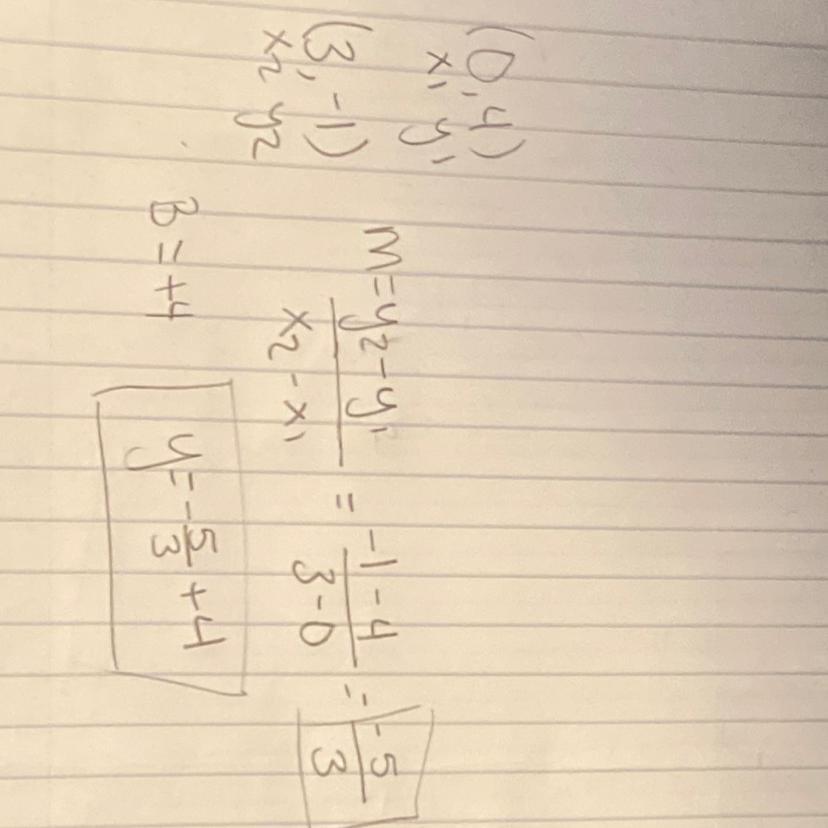 (0, 4)
x1 y1
(3, -1)
x2 y2
m = y2 - y1 / x2 - x1 = -1 - 4 / 3 - 0 = -5 / 3
B = +4
y = - 5/3 + 4